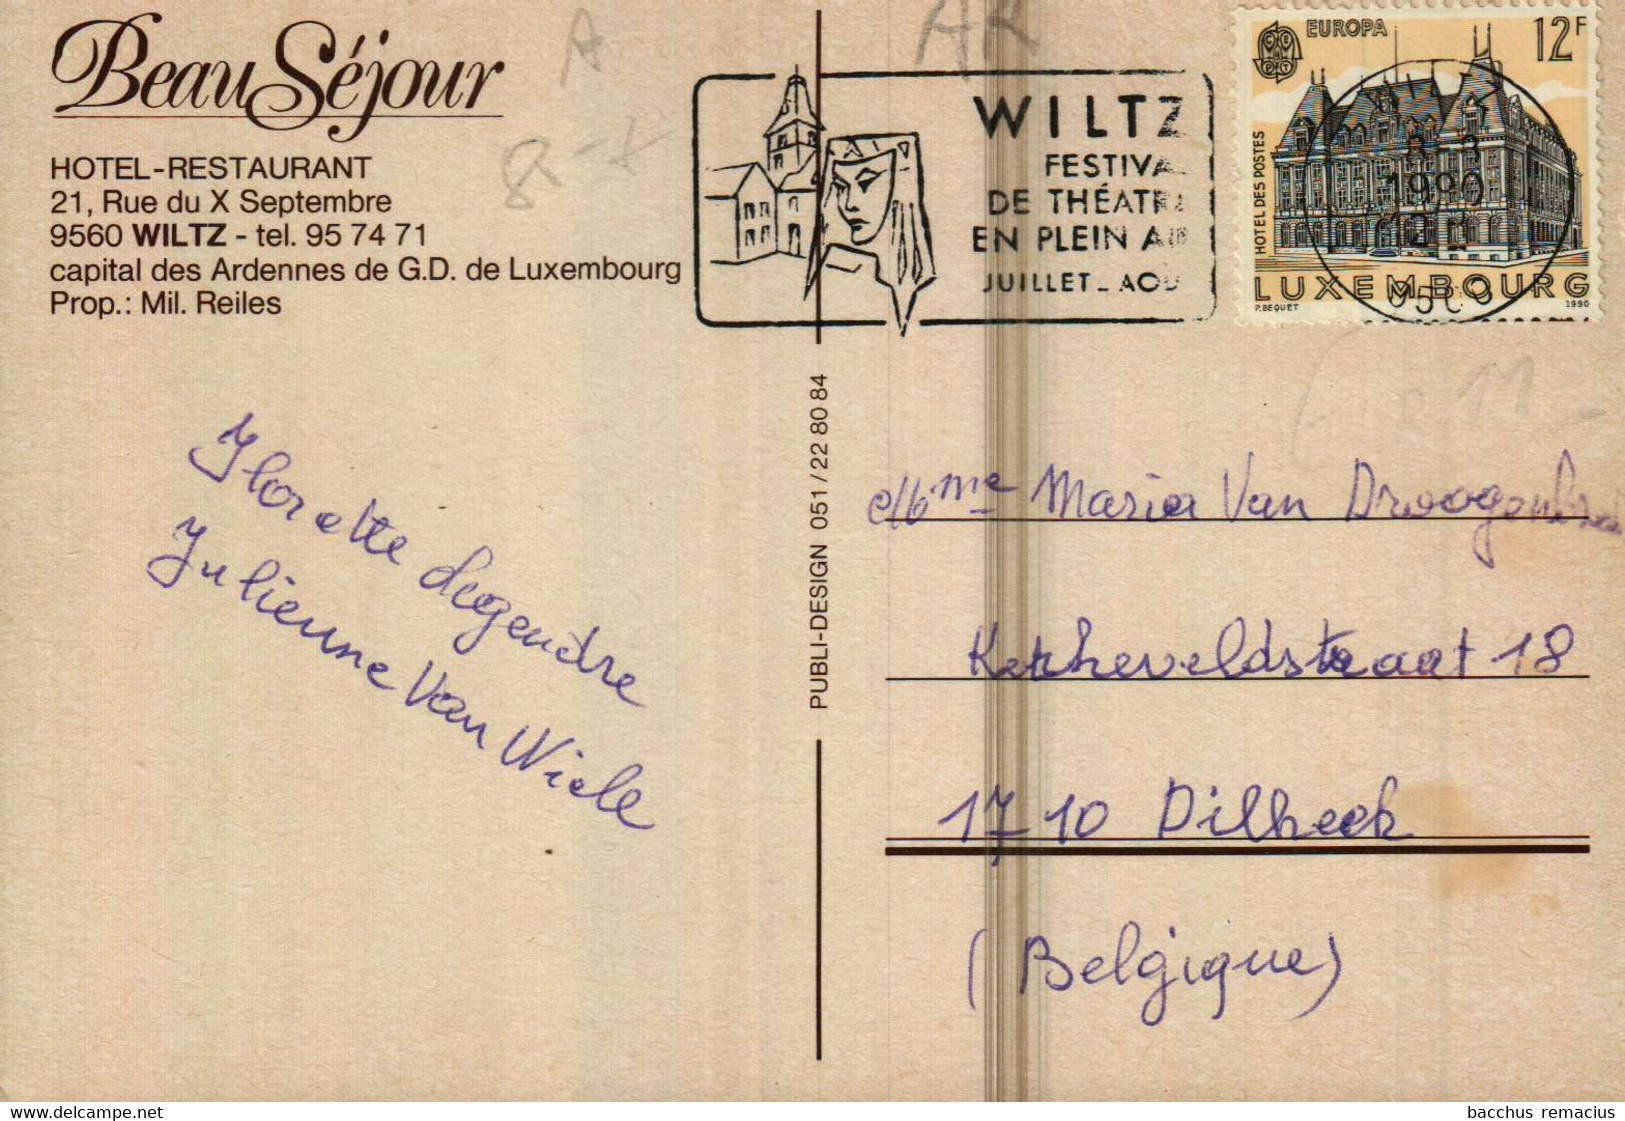 Beau Séjour
HOTEL-RESTAURANT
21, Rue du X Septembre
9560 WILTZ - tel. 95 74 71
capital des Ardennes de G.D. de Luxembourg
Prop.: Mil. Reiles
A
AR
WILTZ
FESTIVAL
DE THÉATRE
EN PLEIN AIR
JUILLET_AOU
EUROPA
12F
CEPT
HOTEL DES POSTES
LUXEMBOURG
P.BEQUET
1990
8 3
1990
11
Florette Legendre
Julienne Van Wiele
PUBLI-DESIGN 051/22 80 84
Mme Maria Van Droogenbroeck
Kerkeveldstraat 18
1710 Dilbeek
(Belgique)
www.delcampe.net
bacchus remacius